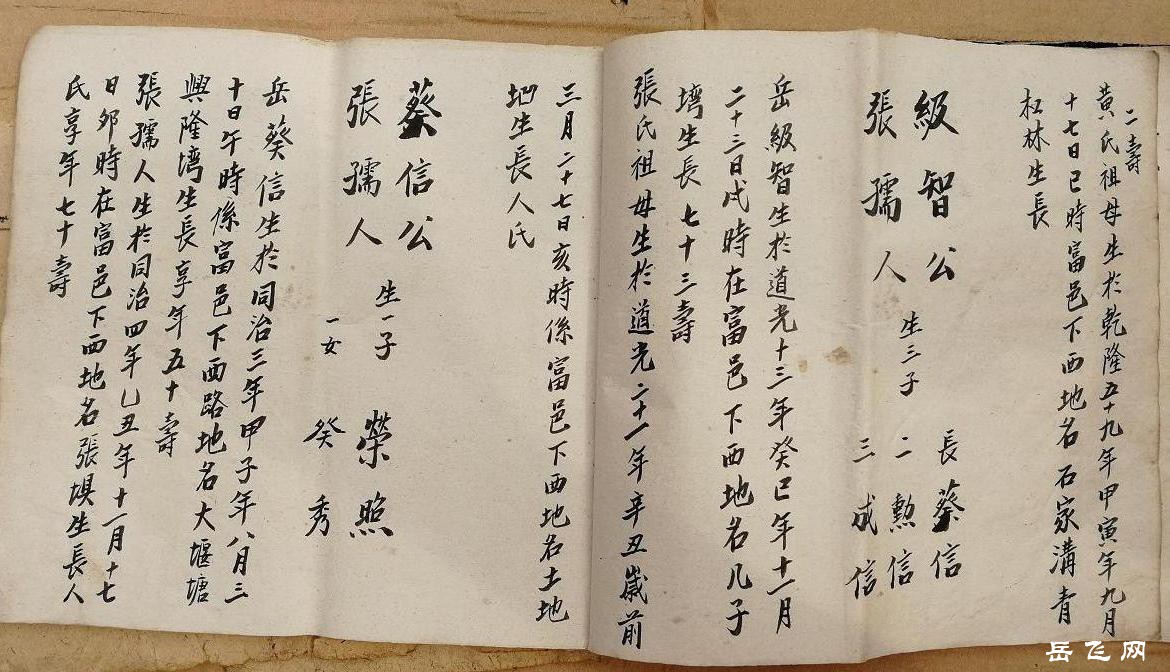 二壽
黃氏祖母生於乾隆五十九年甲寅年九月
十七日巳時富邑下西地名石家溝青
杠林生長
級智公
張孺人
生三子
長蔡信
二勲信
三成信
岳級智生於道光十三年癸巳年十一月
二十三日戌時在富邑下西地名几子
塆生長七十三壽
張氏祖母生於道光二十一年辛丑歲前
三月二十七日亥時係富邑下西地名土地
地生長人氏
蔡信公
張孺人
生一子 榮照
一女 癸秀
岳葵信生於同治三年甲子年八月三
十日午時係富邑下西路地名大堰塘
興隆塆生長享年五十壽
張孺人生於同治四年乙丑年十一月十七
日夘時在富邑下西地名張埧生長人
氏享年七十壽
岳飞网